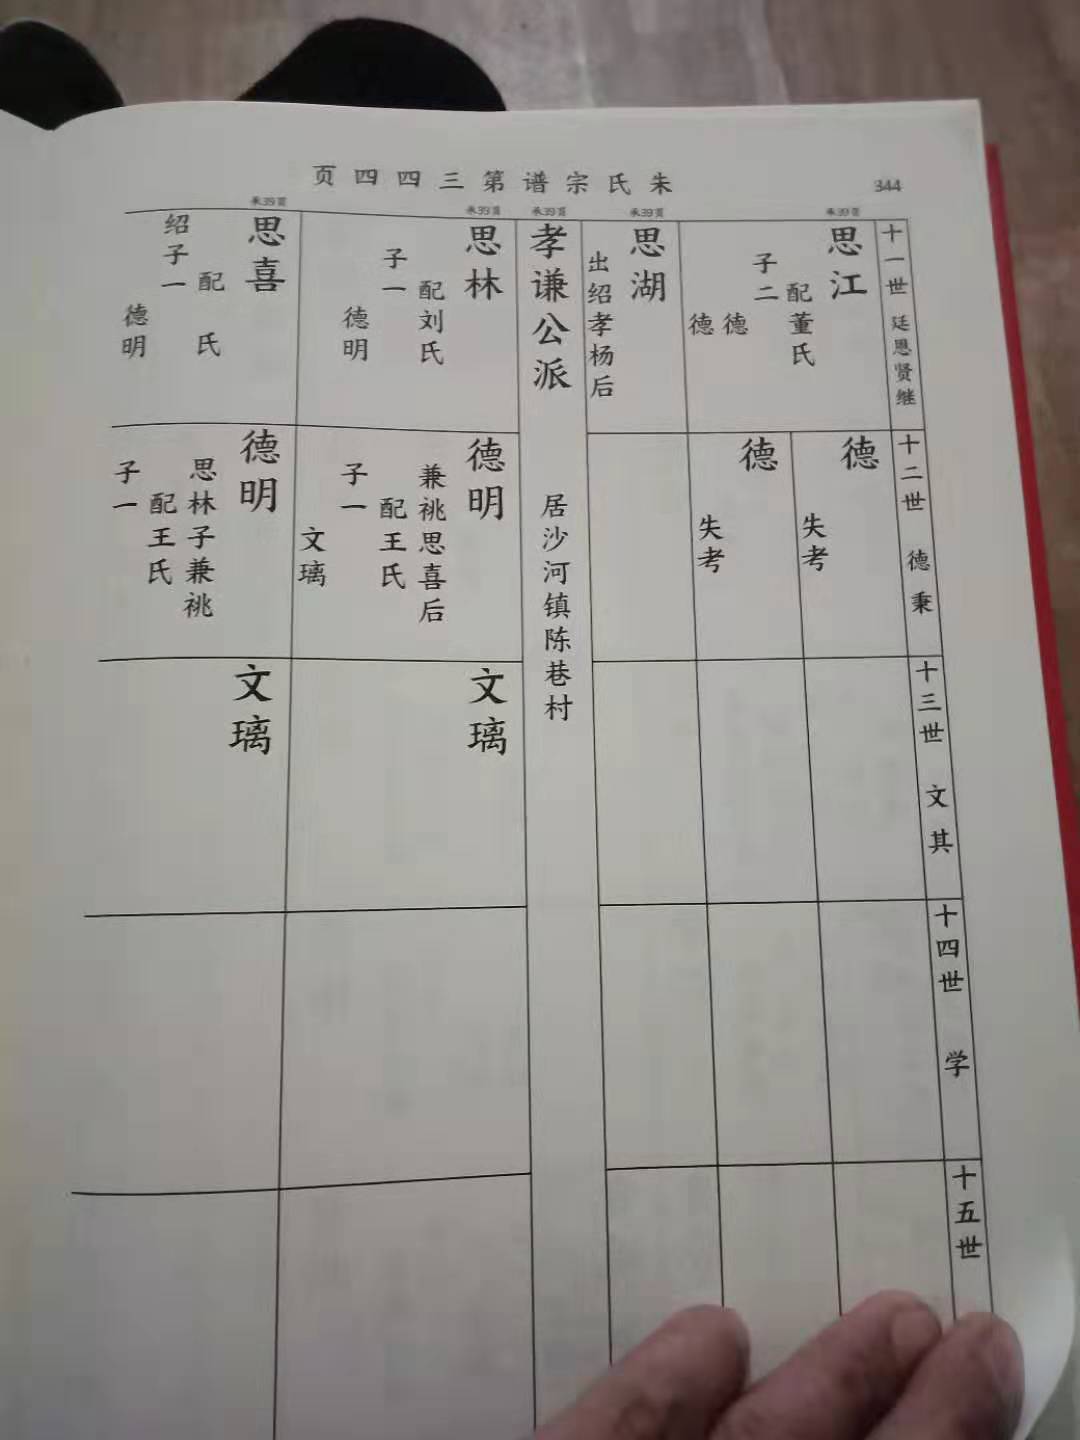 朱氏宗谱第三四四页
344
十一世 廷恩贤继
承39页
思江
配董氏
子二
德
德
承39页
思湖
出绍孝杨后
承39页
孝谦公派 居沙河镇陈巷村
承39页
思林
配刘氏
子一
德明
承39页
思喜
配 氏
绍子一
德明
十二世 德秉
德
失考
德
失考
德明
兼祧思喜后
配王氏
子一
文璃
德明
思林子兼祧
配王氏
子一
十三世 文其
文璃
文璃
十四世 学
十五世